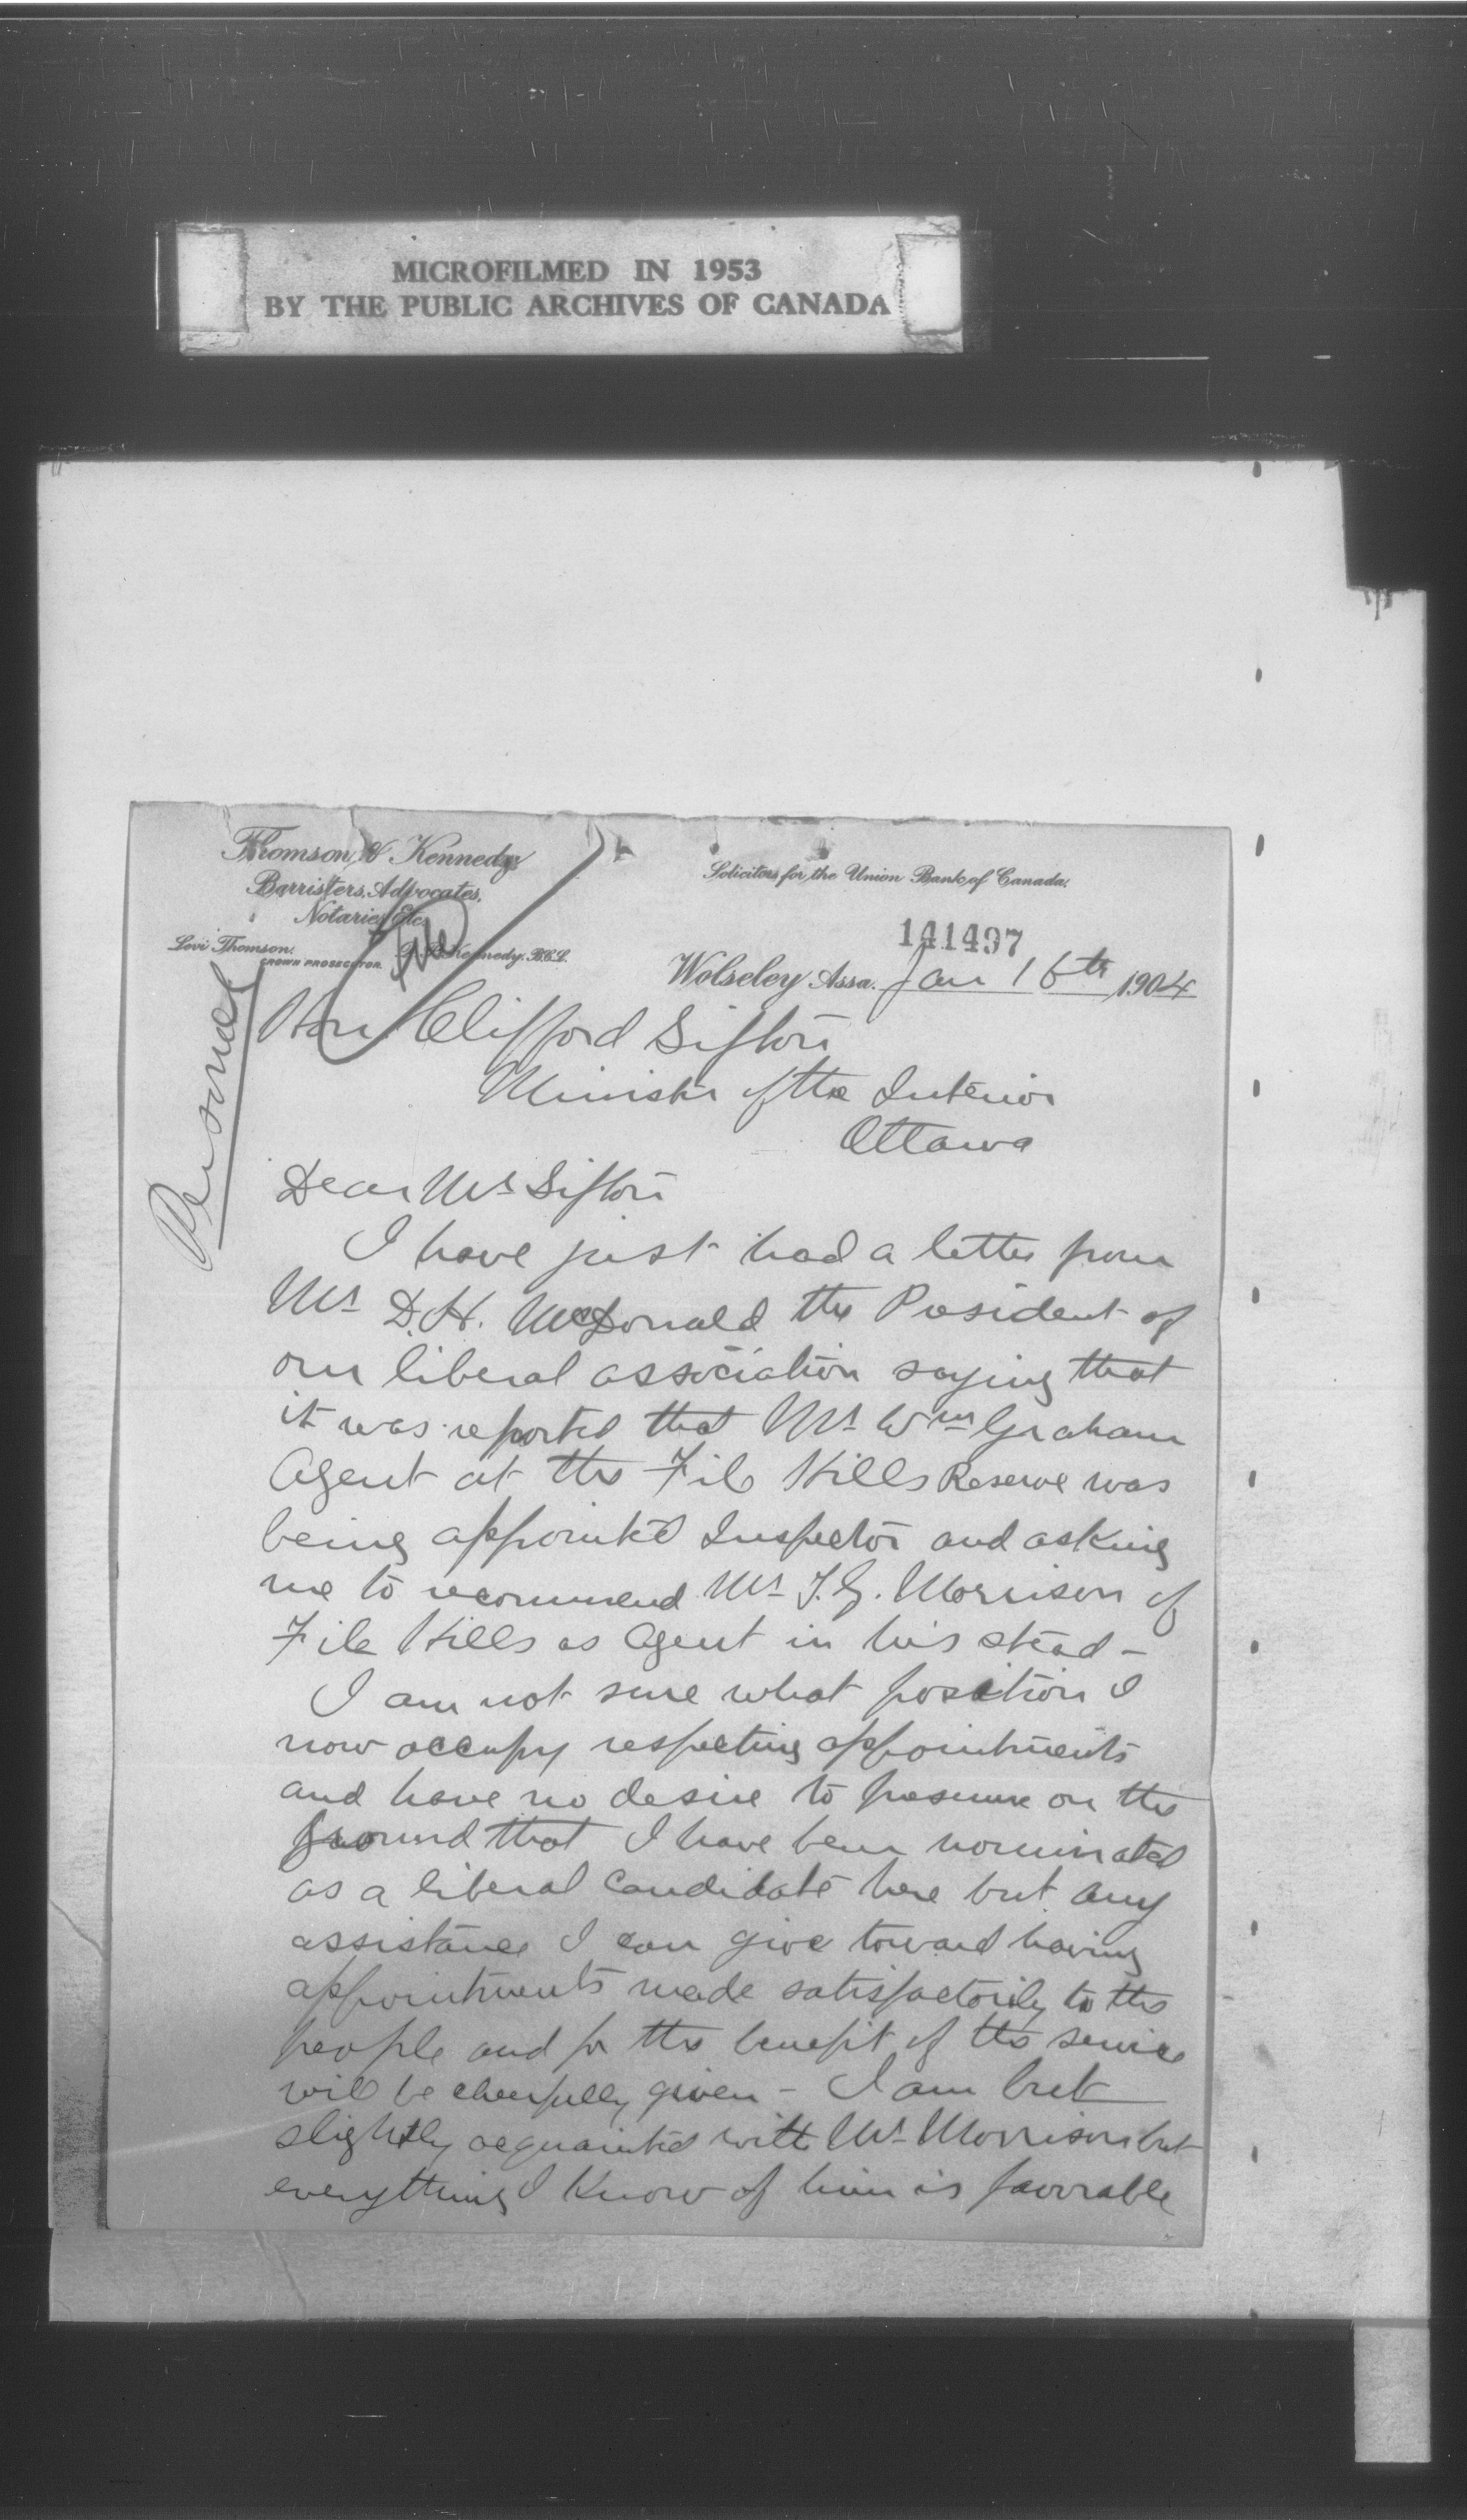 MICROFILMED IN 1953
BY THE PUBLIC ARCHIVES OF CANADA
Thomson & Kennedy,
Barristers, Advocates,
Notaries, Etc.
Levi Thomson.
CROWN PROSECUTOR.
Kennedy. B.C.L.
Solicitors for the Union Bank of Canada.
141497
Wolseley Assa. Jan 16th 1904
Personal
Hon. Clifford Sifton
Minister of the Interior
Ottawa
Dear Mr Sifton
I have just had a letter from
Mr D.H. McDonald the President of
our liberal association saying that
it was reported that Mr Wm Graham
Agent at the File Hills Reserve was
being appointed Inspector and asking
me to recommend Mr T.G. Morrison of
File Hills as Agent in his stead –
I am not sure what position I
now occupy respecting appointments
and have no desire to presume on the
ground that I have been nominated
as a liberal candidate here but any
assistance I can give toward having
appointments made satisfactorily to the
people and for the benefit of the service
will be cheerfully given – I am but
slightly acquainted with Mr Morrison but
everything I know of him is favorable